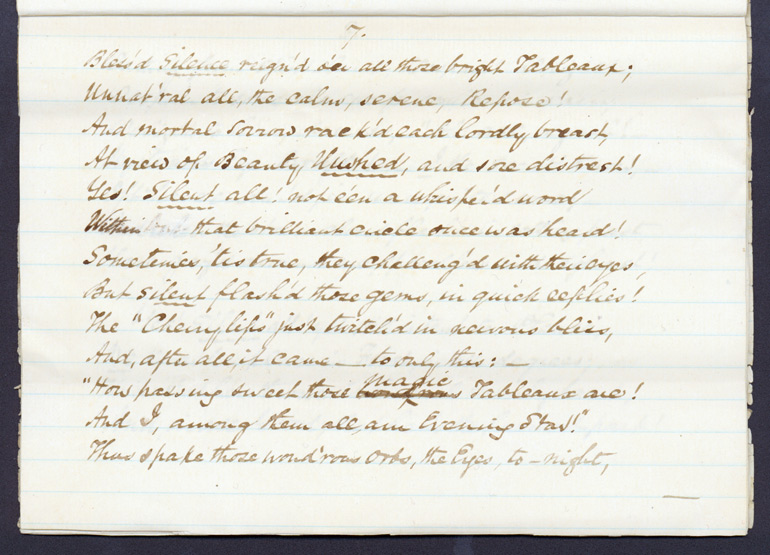 7.
Bless'd Silence reign'd o'er all those bright Tableaux;
Unnat'ral all, the calm, serene, Repose!
And mortal Sorrow rack'd each lordly breast,
At view of Beauty, Hushed, and sore distrest!
Yes! Silent all! not e'en a whisper'd word
Within that brilliant circle once was heard!
Sometimes, 'tis true, they challeng'd with their eyes,
But Silent, flash'd those gems, in quick replies!
The "Cherry lips" just twitch'd in nervous bliss,
And, after all, it came — to only this: —
"How passing sweet those wond'rous magic Tableaux are!
And I, among them all, am Evening Star!"
Thus spake those wond'rous Orbs, the Eyes, to-night,